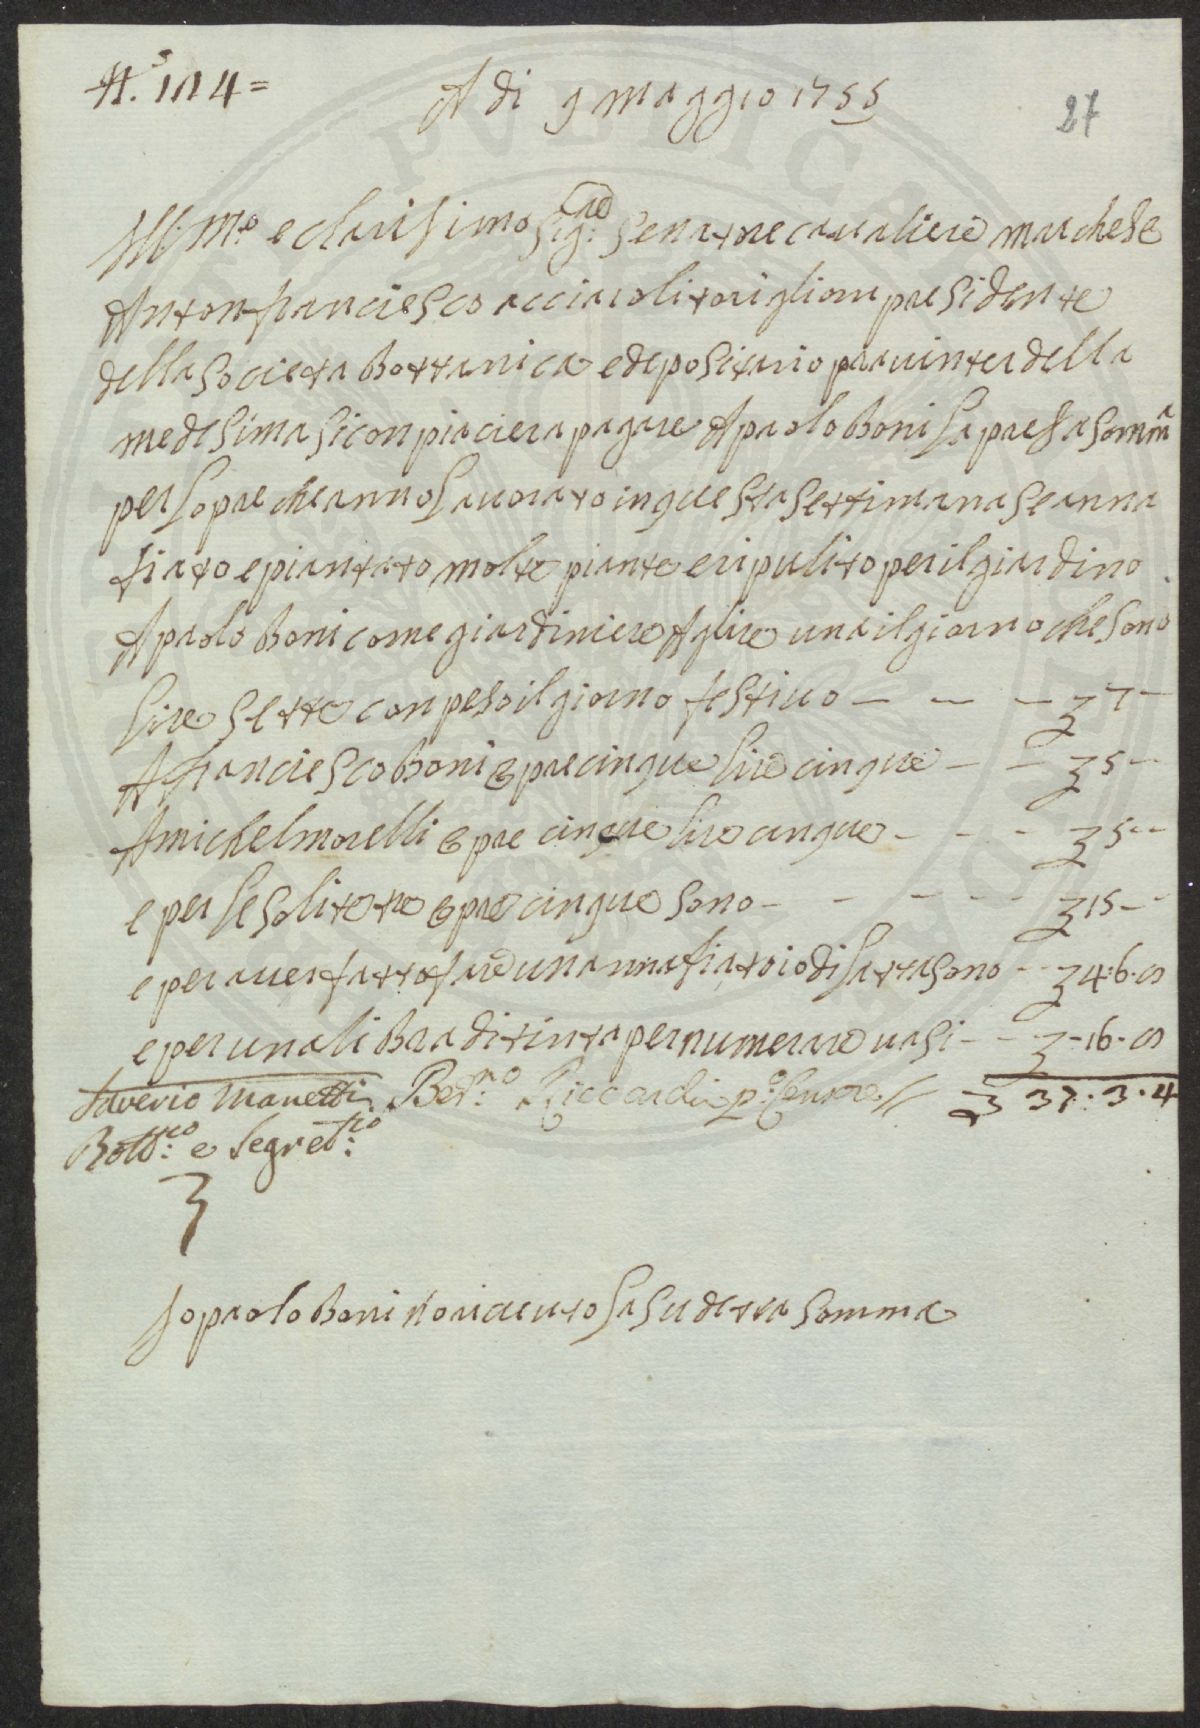 N. 114 =
A di 9 maggio 1755
27
Ill: Mo. e clarisimo Sig:re Senatore cavaliere marchese
Antonfranciesco acciaioli torigliani presidente
della Societa Bottanica e depositario pro intei della
medesima si conpiaciera pagare A paolo Boni la presete somma
per lopre che anno lavorato in questa settimana se anna
fiato e piantato molte piante e ripulito per il giardino
A paolo Boni come giardiniere A lire una il giorno che sono
lire sette conpeso il giorno festivo — — — 7 —
A franciesco Boni opre cinque lire cinque — — 5 —
A michel morelli opre cinque lire cinque - - - 5 --
e per le solite tre opre cinque sono - - - - - 15 - -
e per aver fatto fare un annafiatoio di latta sono - - 4. 6. 8
e per una libra di tinta per numerare vasi - - - 16. 8
Saverio Manetti Ber:no Riccardi p:o Censore // 37. 3. 4
Bott:co e Segret:rio
Io paolo Boni o riceuto la sudetta somma